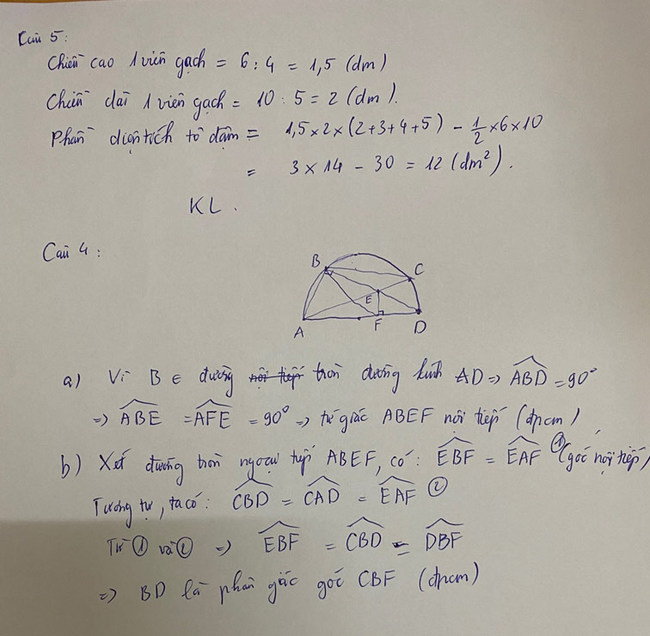 Câu 5:
Chiều cao 1 viên gạch = 6 : 4 = 1,5 (dm)
Chiều dài 1 viên gạch = 10 : 5 = 2 (dm).
Phần diện tích tô đậm = 1,5 × 2 × (2+3+4+5) - 1/2 × 6 × 10
= 3 × 14 - 30 = 12 (dm²).
KL.
Câu 4:
B
C
E
A
F
D
a) Vì B ∈ đường nội tiếp tròn đường kính AD => ABD = 90°
=> ABE = AFE = 90° => tứ giác ABEF nội tiếp (đpcm)
b) Xét đường tròn ngoại tiếp ABEF, có: EBF = EAF ① (góc nội tiếp)
Tương tự, ta có: CBD = CAD = EAF ②
Từ ① và ② => EBF = CBD = DBF
=> BD là phân giác góc CBF (đpcm)